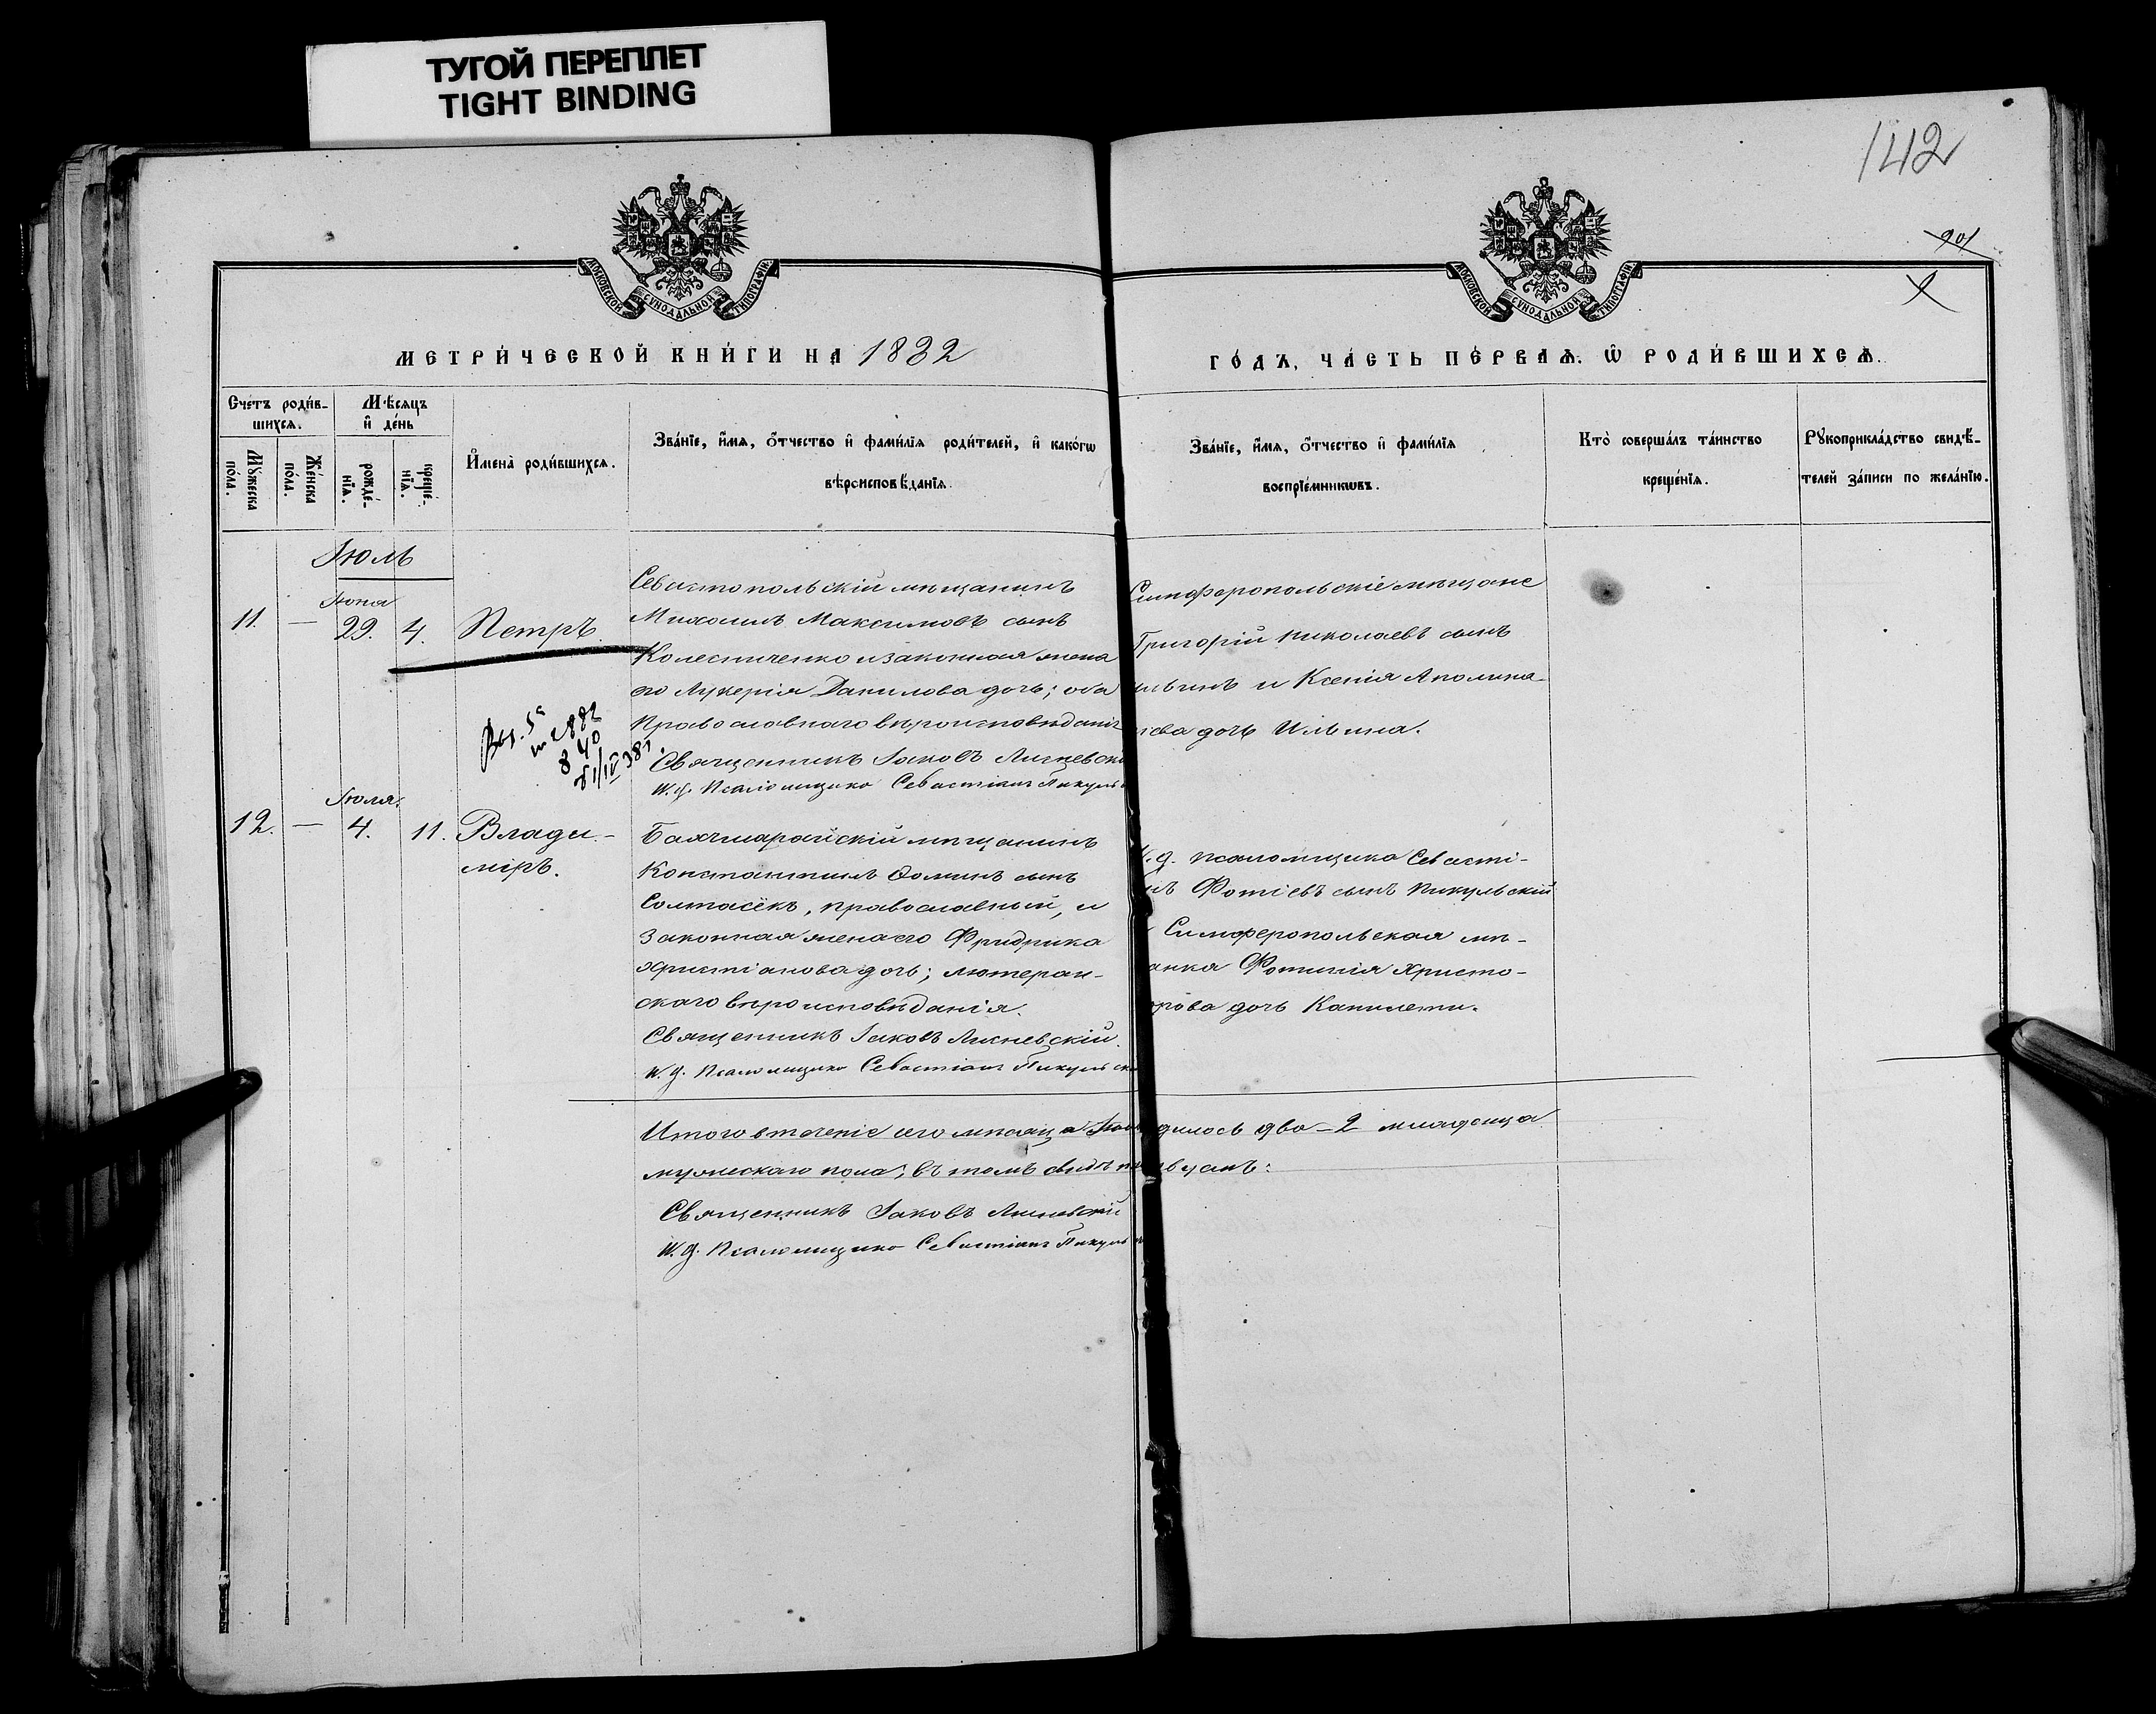 ТУГОЙ ПЕРЕПЛЕТ
TIGHT BINDING
142
901
МОСКОВСКОЙ СѴНОДАЛЬНОЙ ТИПОГРАФІИ
МОСКОВСКОЙ СѴНОДАЛЬНОЙ ТИПОГРАФІИ
МЕТРИ́ЧЕСКОЙ КНИ́ГИ НА 1882
ГО́ДЪ, ЧА́СТЬ ПЕ́РВАѦ. Ѡ҆ РОДИ́ВШИХСѦ.
Счетъ роди́в-
шихсѧ.
Мꙋ́жеска по́ла.
Же́нска по́ла.
Мѣ́сяцъ
и҆ де́нь
рожде́-нїѧ.
креще́-нїѧ.
И҆мена̀ роди́вшихсѧ.
Зва́нїе, и҆́мѧ, о҆́тчество и҆ фами́лїѧ роди́телей, и҆ како́гѡ
вѣроисповѣ́данїѧ.
Зва́нїе, и҆́мѧ, о҆́тчество и҆ фами́лїѧ
воспрїе́мникѡвъ.
Кто̀ соверша́лъ та́инство
креще́нїѧ.
Рꙋкоприкла́дство свидѣ́-
телей за́писи по жела́нїю.
Іюль
Іюня
11. — 29. 4. Петръ.
Севастопольскій мѣщанинъ
Михаилъ Максимовъ сынъ
Колесниченко и законная жена
его Лукерія Данилова дочь; оба
православнаго вѣроисповѣданія.
Священникъ Іаковъ
И. д. Псаломщика Севастіанъ Пикульс
Симферопольскіе мѣщане
Григорій Николаевъ сынъ
Ильинъ и Ксенія Аполина-
ріева дочь Ильина.
Іюля.
12. — 4. 11. Влади-
міръ.
Бахчисарайскій мѣщанинъ
Константинъ Ѳоминъ сынъ
православный, и
законная жена его Фридрика
Христіанова дочь; лютеран-
скаго вѣроисповѣданія.
Священникъ Іаковъ
И. д. Псаломщика Севастіанъ Пикульск
И. д. псаломщика Севасті-
нъ Фотіевъ сынъ Пикульскій
Симферопольская мѣ-
анка Фотинія Христо-
форова дочь
Итого втеченіе сего мѣсяца дилось два – 2 младенца
мужескаго пола; въ томъ
Священникъ Іаковъ
И. д. Псаломщика Севастіанъ Пикульс